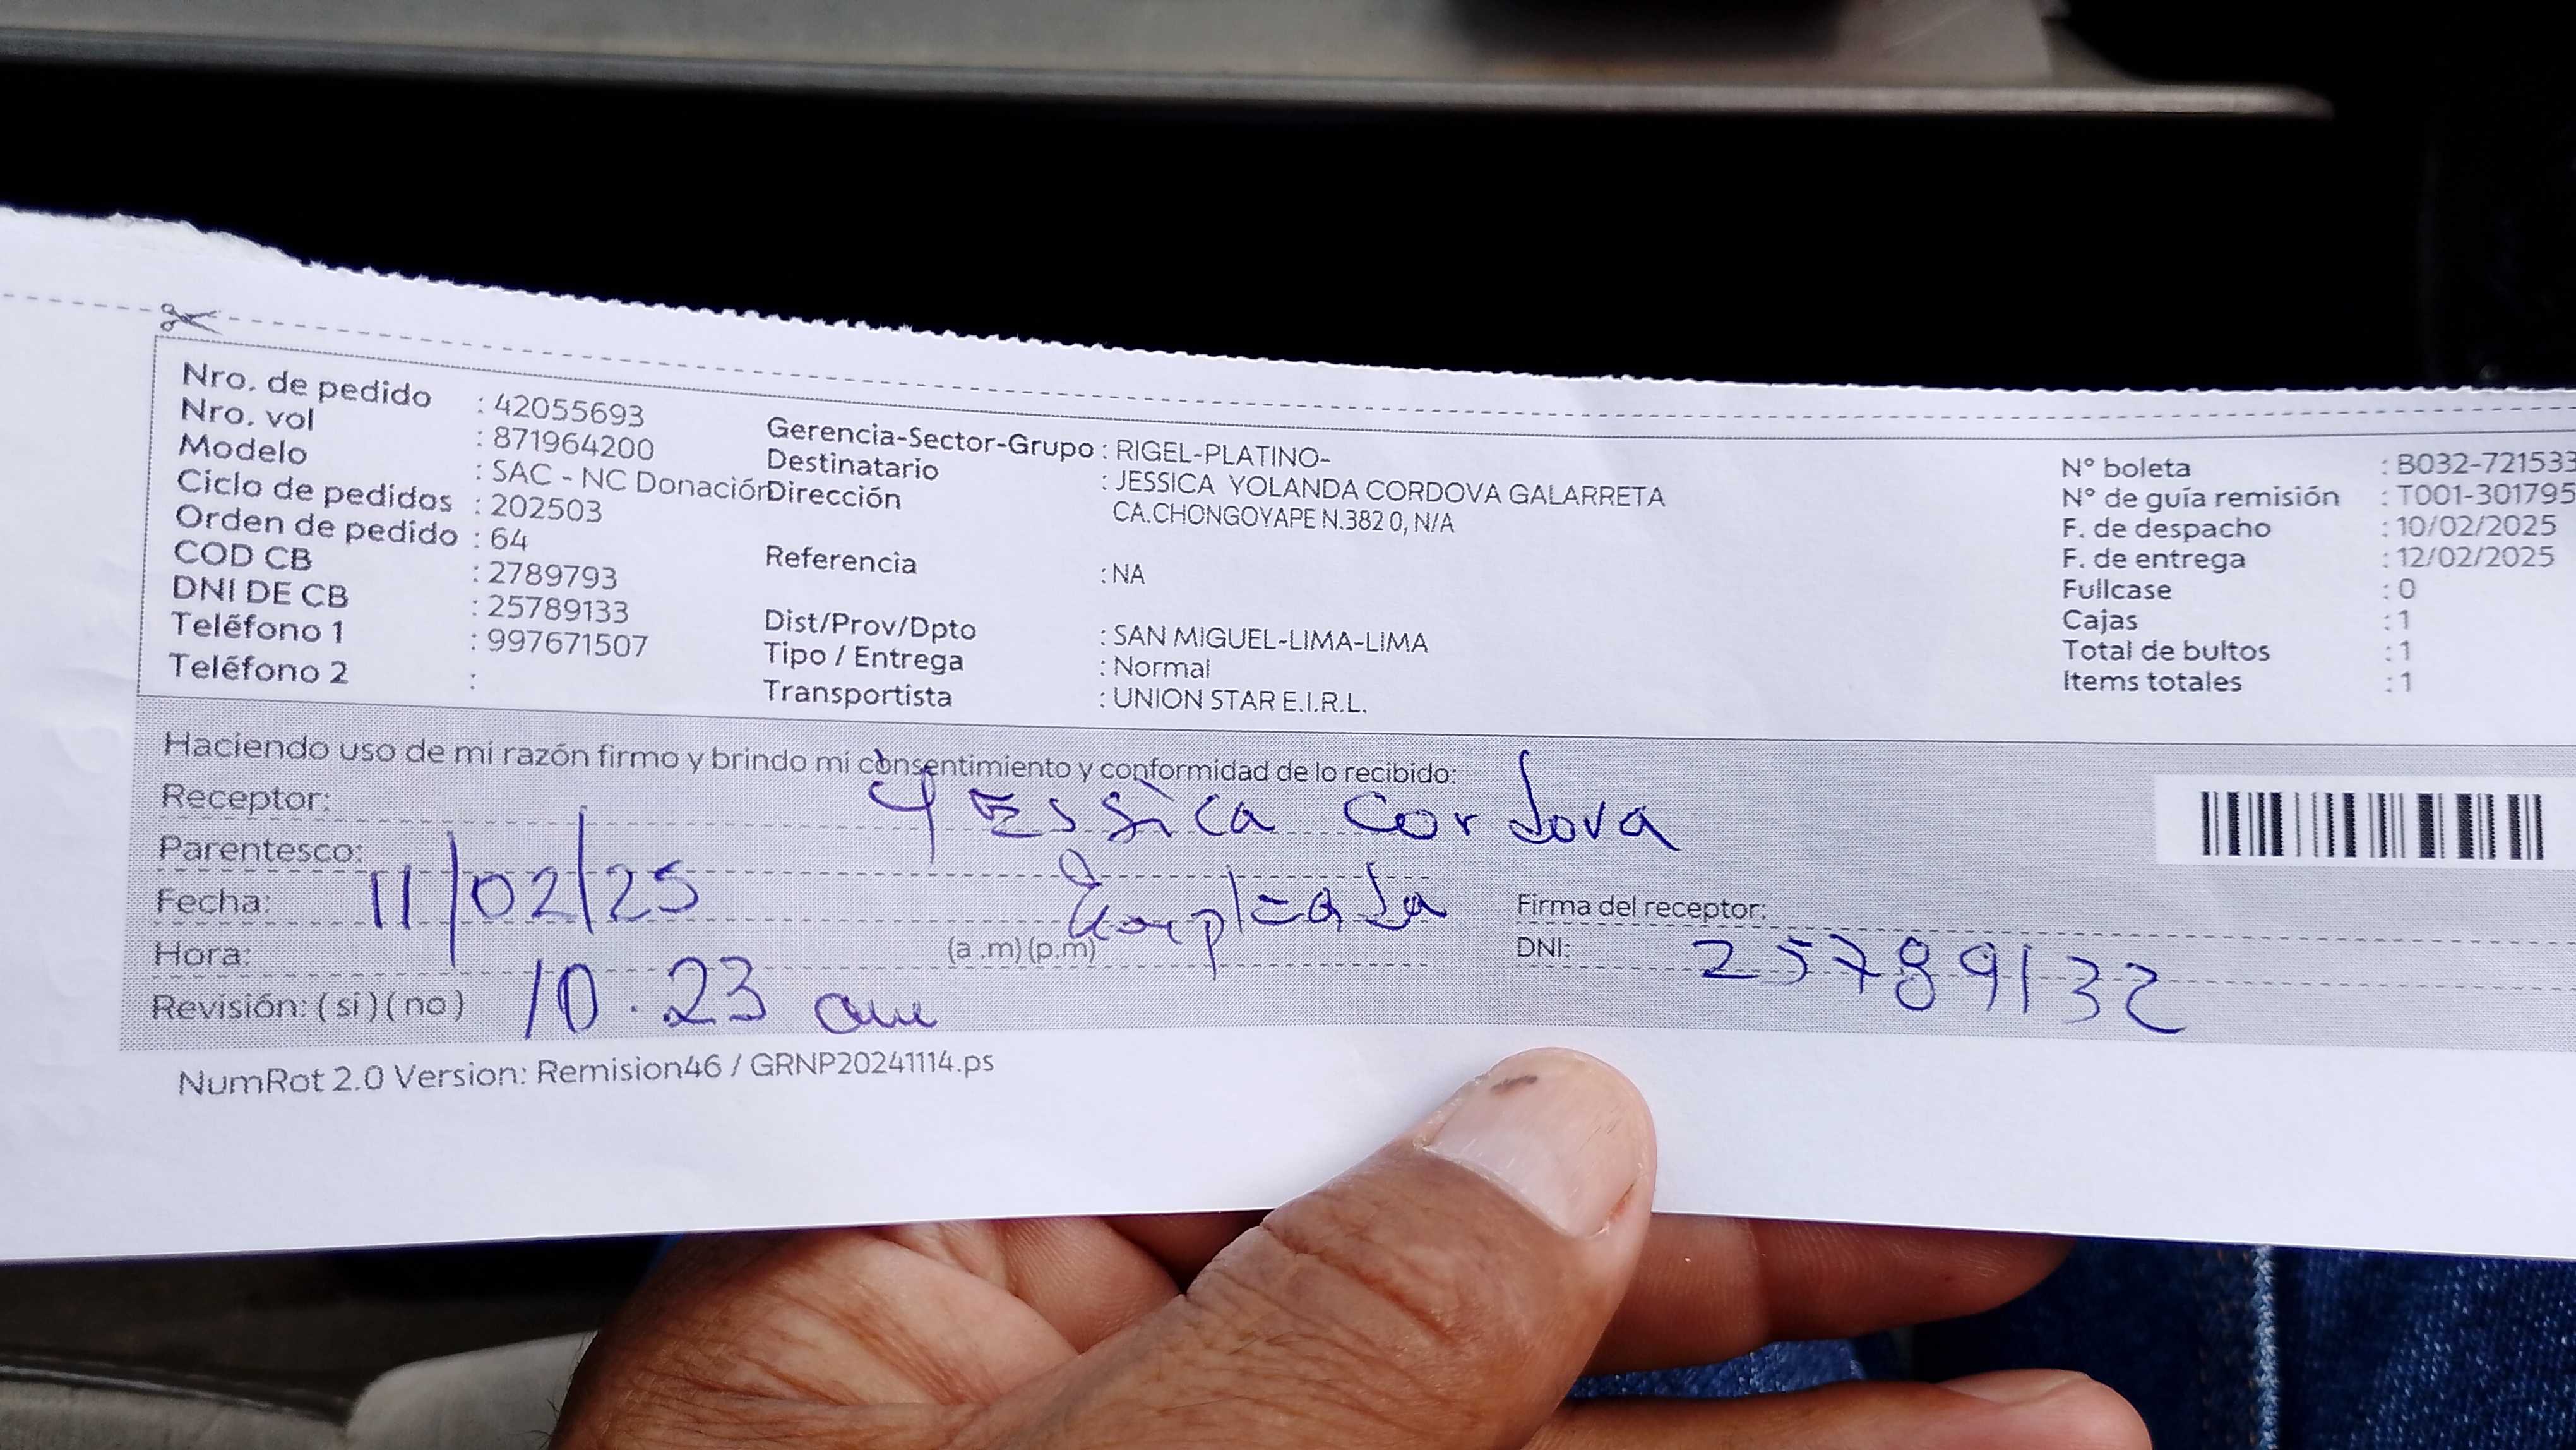 Nro. de pedido : 42055693
Nro. vol : 871964200
Modelo : SAC - NC Donación
Ciclo de pedidos : 202503
Orden de pedido : 64
COD CB : 2789793
DNI DE CB : 25789133
Teléfono 1 : 997671507
Teléfono 2 :
Gerencia-Sector-Grupo : RIGEL-PLATINO-
Destinatario : JESSICA YOLANDA CORDOVA GALARRETA
Dirección CA.CHONGOYAPE N.382 0, N/A
Referencia : NA
Dist/Prov/Dpto : SAN MIGUEL-LIMA-LIMA
Tipo / Entrega : Normal
Transportista : UNION STAR E.I.R.L.
N° boleta : B032-721533
N° de guía remisión : T001-301795
F. de despacho : 10/02/2025
F. de entrega : 12/02/2025
Fullcase : 0
Cajas : 1
Total de bultos : 1
Items totales : 1
Haciendo uso de mi razón firmo y brindo mi consentimiento y conformidad de lo recibido:
Receptor: Yessica Cordova
Parentesco: Empleada
Fecha: 11/02/25
Firma del receptor:
Hora: 10.23 am (a .m) (p.m)
DNI: 25789132
Revisión: ( si ) ( no )
NumRot 2.0 Version: Remision46 / GRNP20241114.ps